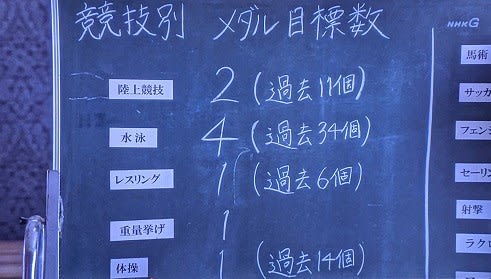 競技別 メダル目標数
NHK G
陸上競技 2 (過去11個)
水泳 4 (過去34個)
レスリング 1 (過去6個)
重量挙げ 1
体操 1 (過去14個)
馬術
サッカ
フェン
セーリ
射撃
ラクロ